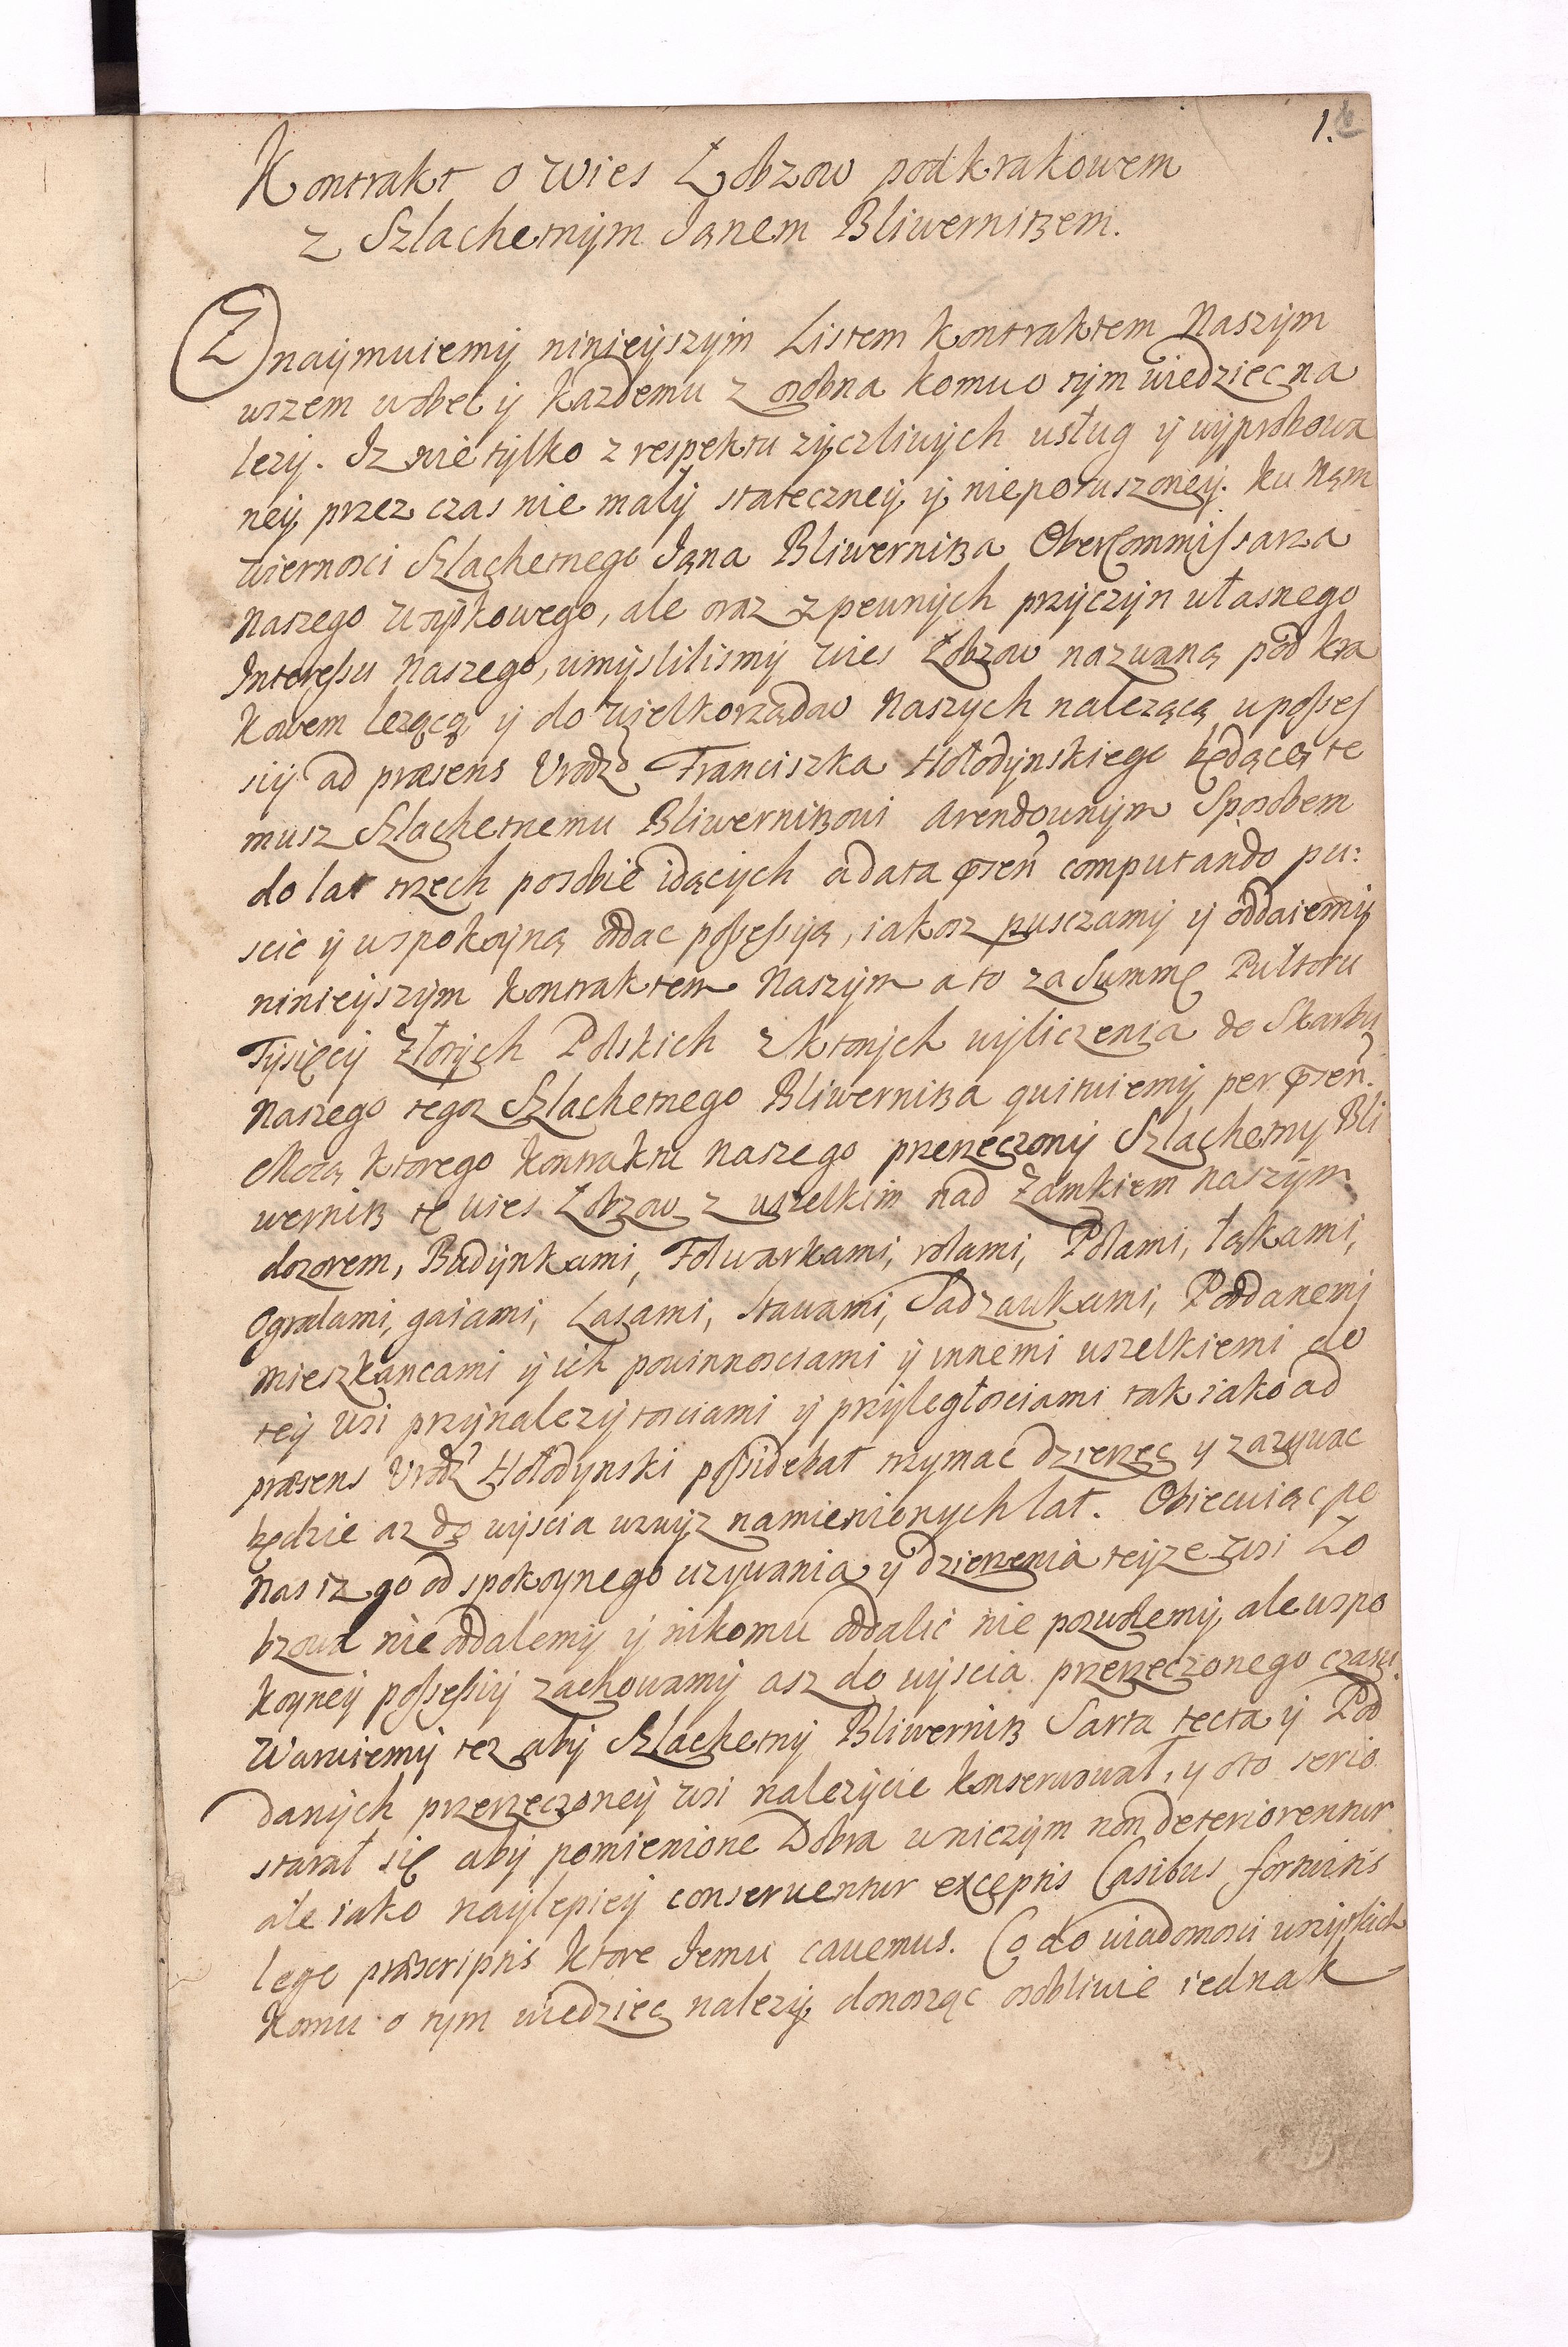 1.
Kontrakt o Wies Łobzow pod krakowem
z Szlachetnÿm Janem Bliwernitzem.
Znaÿmuiemÿ ninieÿszÿm Listem kontraktem Naszÿm
wszem wobec ÿ każdemu z osobna komu o tÿm wiedziec na
lezÿ. Iz nie tÿlko z respektu zÿczliwÿch usług ÿ wÿprobowa
neÿ przez czas nie małÿ stateczneÿ ÿ nieporuszoneÿ ku Nam
wiernosci Szlachetnego Jana Bliwernitza OberCommissarza
Naszego Woÿskowego, ale oraz z pewnÿch przÿczÿn własnego
Interessu Naszego, umÿslilismÿ Wies Łobzow nazwaną pod kra
kowem lezącą ÿ do Wielkorządow Naszÿch nalezącą w posses
sÿi ad præsens Urodzo Franciszka Hołodÿnskiego będącą te
musz Szlachetnemu Bliwernitzowi Arendownÿm Sposobem
do lat trzech posobie idącÿch a data præsen computando pu:
scic ÿ w spokoÿną oddac possessÿą, iakosz pusczamÿ ÿ oddaiemÿ
ninieÿszÿm kontraktem Naszÿm a to za Summę Pułtoru
Tÿsięcÿ Złotÿch Polskich z ktorÿch wÿliczenia do Skarbu
Naszego tegoz Szlachetnego Bliwernitza quituiemÿ per præsen.
Mocą ktorego kontraktu naszego przerzeczonÿ Szlachetnÿ Bli
wernitz tę wies Łobzow z wszelkim nad Zamkiem naszÿm
dozorem, Budÿnkami, Folwarkami, rolami, Polami, łąkami,
Ogrodami, gaiami, Lasami, Stawami, Sadzawkami, Poddanemi
mieszkancami ÿ ich powinnosciami ÿ innemi wszelkiemi do
teÿ Wsi przÿnalezÿtosciami ÿ przÿległosciami tak iako ad
præsens Urodz Hołodÿnski possidebat trzymac dzierzec ÿ zazÿwac
będzie az do wÿscia wzwÿz namienionych lat. Obiecuiąc po
Nas iz go od spokoÿnego uzÿwania ÿ dzierzenia teÿze Wsi Ło
bzowa nie oddalemÿ ÿ nikomu oddalic nie pozwolemÿ, ale w spo
koÿneÿ possessÿi zachowamÿ asz do wÿscia przerzeczonego czasu.
Waruiemÿ tez abÿ Szlachetnÿ Bliwernitz Sarta tecta ÿ Pod
danÿch przerzeczoneÿ Wsi nalezÿcie konserwował, ÿ oto serio
starał się abÿ pomienione Dobra w niczÿm non deteriorentur
ale iako naÿlepieÿ conserventur exceptis Casibus fortuitis
lege præscriptis ktore Jemu cavemus. Co do wiadomosci wszÿtkich
komu o tÿm wiedziec nalezÿ donosząc osobliwie iednak